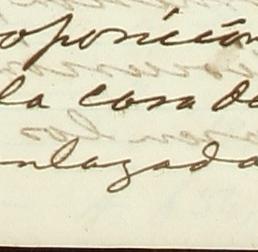 oposición
la cosa de
nlazada